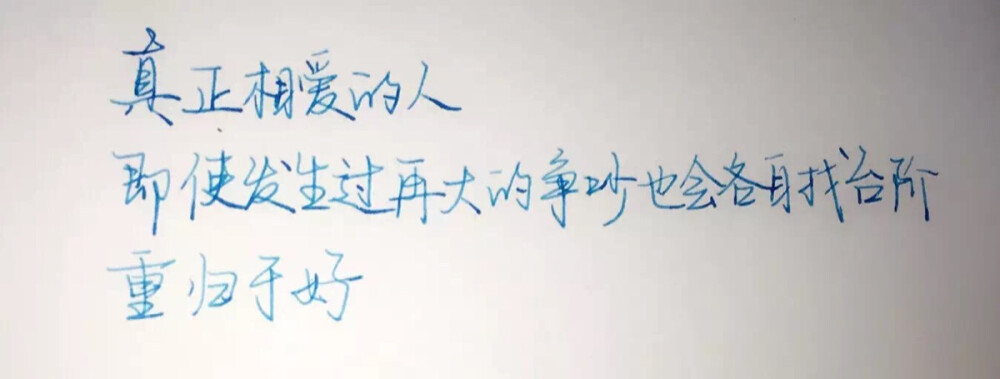 真正相爱的人
即使发生过再大的争吵也会各自找台阶
重归于好